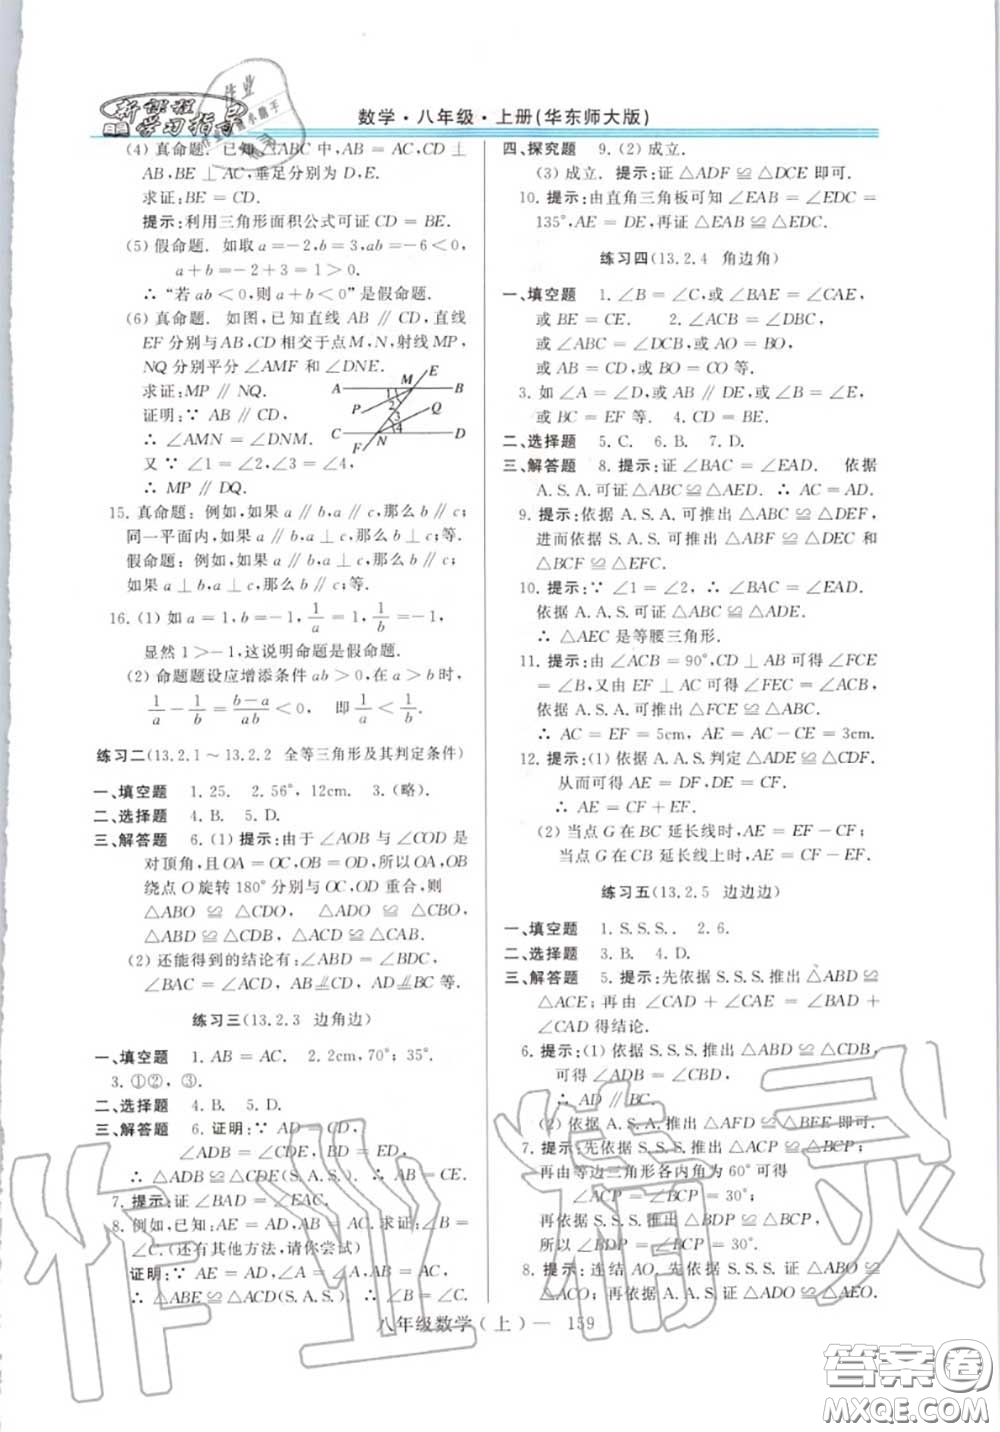 新课程
学习指导
数学·八年级·上册(华东师大版)
(4) 真命题. 已知 △ABC中,AB = AC,CD ⊥
AB,BE ⊥ AC,垂足分别为 D,E.
求证:BE = CD.
提示:利用三角形面积公式可证 CD = BE.
(5) 假命题. 如取 a =−2,b = 3,ab =−6 < 0,
a + b =−2 + 3 = 1 > 0.
∴ “若 ab < 0,则 a + b < 0”是假命题.
(6) 真命题. 如图,已知直线 AB ∥ CD,直线
EF 分别与 AB,CD 相交于点 M,N,射线 MP,
NQ 分别平分 ∠AMF 和 ∠DNE.
求证:MP ∥ NQ.
证明:∵ AB ∥ CD,
∴ ∠AMN = ∠DNM.
又 ∵ ∠1 = ∠2,∠3 = ∠4,
∴ MP ∥ DQ.
A B C D E F M N P Q 1 2 3 4
15. 真命题:例如,如果 a ∥ b,a ∥ c,那么 b ∥ c;
同一平面内,如果 a ⊥ b,a ⊥ c,那么 b ∥ c;等.
假命题:例如,如果 a ∥ b,a ∥ c,那么 b ⊥ c;
如果 a ⊥ b,a ⊥ c,那么 b ∥ c;等.
16. (1) 如 a = 1,b =−1,1/a = 1,1/b =−1,
显然 1 >−1,这说明命题是假命题.
(2) 命题题设应增添条件 ab > 0,在 a > b 时,
1/a − 1/b = (b−a)/ab < 0, 即 1/a < 1/b.
练习二(13.2.1 ~ 13.2.2 全等三角形及其判定条件)
一、填空题 1. 25. 2. 56°,12cm. 3. (略).
二、选择题 4. B. 5. D.
三、解答题 6. (1) 提示:由于 ∠AOB 与 ∠COD 是
对顶角,且 OA = OC,OB = OD,所以 OA,OB
绕点 O 旋转 180° 分别与 OC,OD 重合,则
△ABO ≌ △CDO, △ADO ≌ △CBO,
△ABD ≌ △CDB, △ACD ≌ △CAB.
(2) 还能得到的结论有:∠ABD = ∠BDC,
∠BAC = ∠ACD, AB ∥ CD, AD ∥ BC 等.
练习三(13.2.3 边角边)
一、填空题 1. AB = AC. 2. 2cm,70°;35°.
3. ①②,③.
二、选择题 4. B. 5. D.
三、解答题 6. 证明:∵ AD = CD,
∠ADB = ∠CDE,BD = DE,
∴ △ADB ≌ △CDE(S. A. S.). ∴ AB = CE.
7. 提示:证 ∠BAD = ∠EAC.
8. 例如,已知:AE = AD,AB = AC. 求证:∠B =
∠C. (还有其他方法,请你尝试)
证明:∵ AE = AD,∠A = ∠A,AB = AC,
∴ △ABE ≌ △ACD(S. A. S.). ∴ ∠B = ∠C.
四、探究题 9. (2) 成立.
(3) 成立. 提示:证 △ADF ≌ △DCE 即可.
10. 提示:由直角三角板可知 ∠EAB = ∠EDC =
135°,AE = DE,再证 △EAB ≌ △EDC.
练习四(13.2.4 角边角)
一、填空题 1. ∠B = ∠C,或 ∠BAE = ∠CAE,
或 BE = CE. 2. ∠ACB = ∠DBC,
或 ∠ABC = ∠DCB,或 AO = BO,
或 AC = BD,或 BO = CO 等.
3. 如 ∠A = ∠D,或 AB ∥ DE,或 ∠B = ∠E,
或 BC = EF 等. 4. CD = BE.
二、选择题 5. C. 6. B. 7. D.
三、解答题 8. 提示:证 ∠BAC = ∠EAD. 依据
A. S. A. 可证 △ABC ≌ △AED. ∴ AC = AD.
9. 提示:依据 A. S. A. 可推出 △ABC ≌ △DEF,
进而依据 S. A. S. 可推出 △ABF ≌ △DEC 和
△BCF ≌ △EFC.
10. 提示:∵ ∠1 = ∠2, ∴ ∠BAC = ∠EAD.
依据 A. A. S. 可证 △ABC ≌ △ADE.
∴ △AEC 是等腰三角形.
11. 提示:由 ∠ACB = 90°,CD ⊥ AB 可得 ∠FCE
= ∠B,又由 EF ⊥ AC 可得 ∠FEC = ∠ACB,
依据 A. S. A. 可推出 △FCE ≌ △ABC.
∴ AC = EF = 5cm,AE = AC − CE = 3cm.
12. 提示:(1) 依据 A. A. S. 判定 △ADE ≌ △CDF.
从而可得 AE = DF,DE = CF.
∴ AE = CF + EF.
(2) 当点 G 在 BC 延长线时,AE = EF − CF;
当点 G 在 CB 延长线上时,AE = CF − EF.
练习五(13.2.5 边边边)
一、填空题 1. S. S. S. . 2. 6.
二、选择题 3. B. 4. D.
三、解答题 5. 提示:先依据 S. S. S. 推出 △ABD ≌
△ACE;再由 ∠CAD + ∠CAE = ∠BAD +
∠CAD 得结论.
6. 提示:(1) 依据 S. S. S. 推出 △ABD ≌ △CDB,
可得 ∠ADB = ∠CBD,
∴ AD ∥ BC.
(2) 依据 S. A. S. 可推出 △AFD ≌ △BEE 即可.
7. 提示:先依据 S. S. S. 推出 △ACP ≌ △BCP;
再由等边三角形各内角为 60° 可得
∠ACP = ∠BCP = 30°;
再依据 S. S. S. 可推出 △BDP ≌ △BCP,
所以 ∠BDP = ∠BCP = 30°.
8. 提示:连结 AO,先依据 S. S. S. 证 △ABO ≌
△ACO,再依据 A. A. S. 证 △ADO ≌ △AEO.
八年级数学(上)— 159
作业精灵
答案卷
MXQE.COM